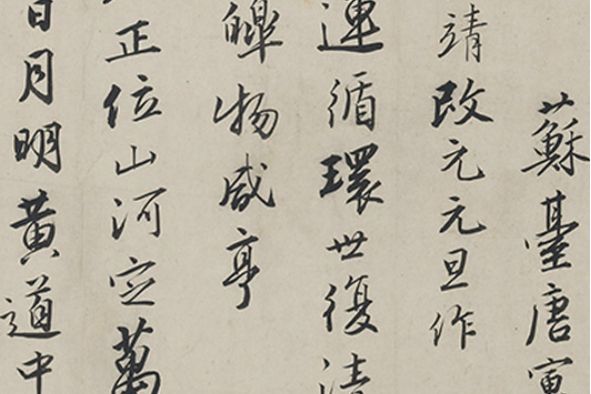 蘇臺唐寅
靖改元元旦作
運循環世復清
皞物咸亨
正位山河定萬
日月明黃道中